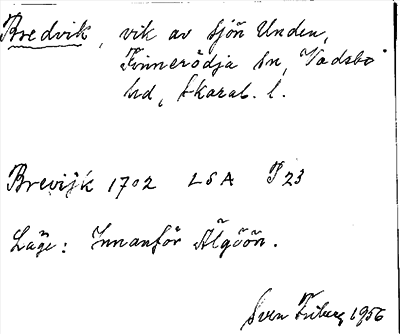 Bredvik, vik av sjön Unden,
Finnerödja sn, Vadsbo
hd, Skarab. l.
Brevijk 1702 LSA P23
Läge: Innanför Älgöön.
Sven Friberg 1956